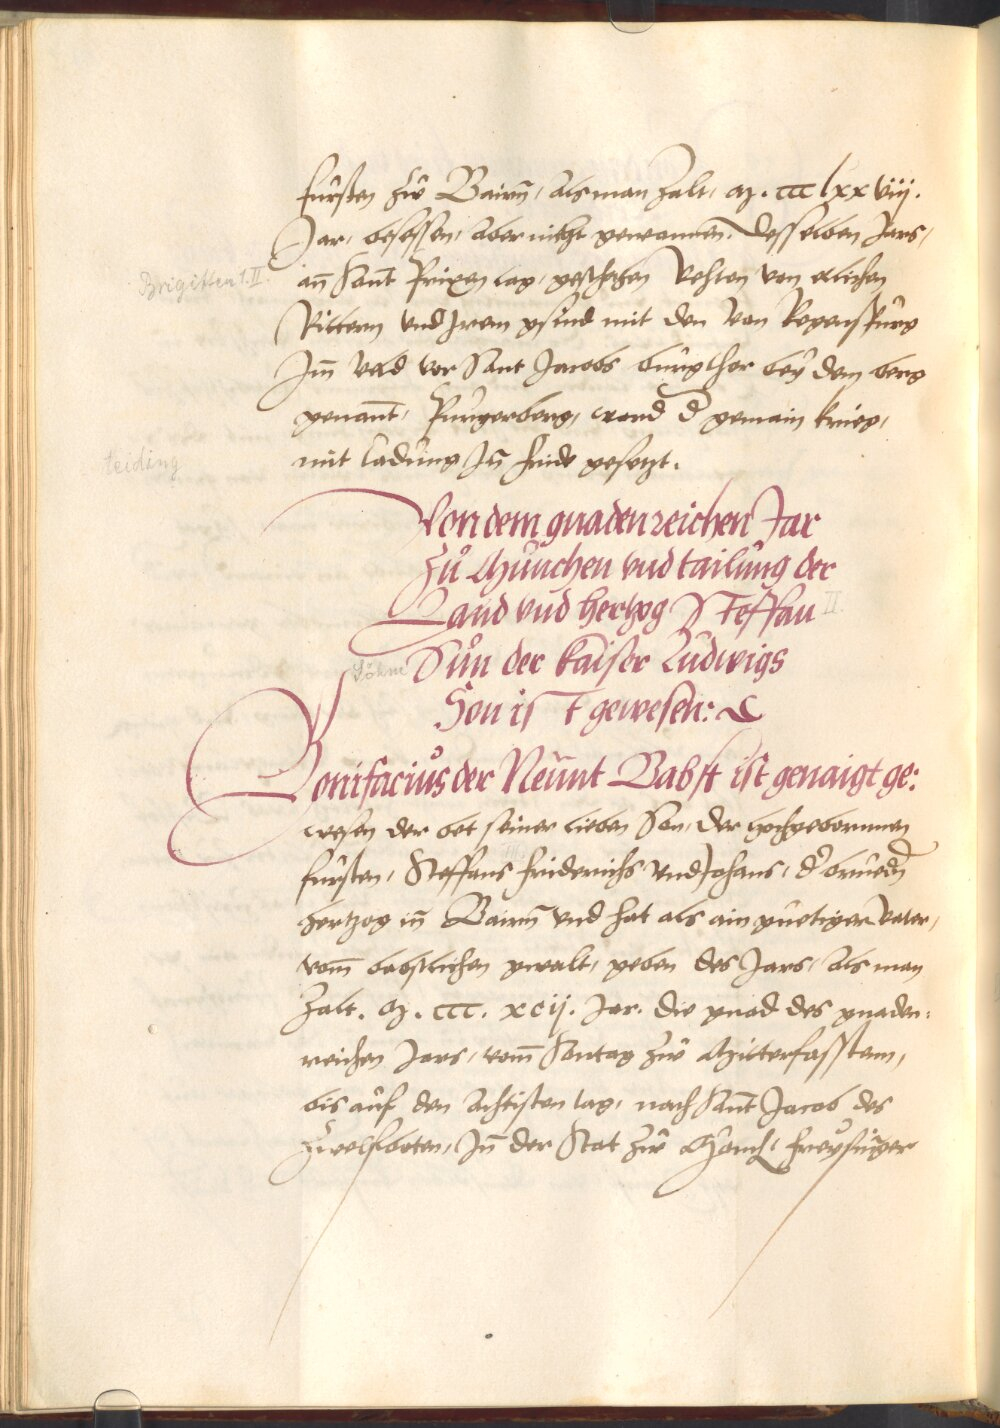 fürsten zw Bairn, als man zalt, M. ccc lxxviij.
Jar, besessen, aber nicht gewannen. Desselben Jars,
an Sant Prixen tag, geschahen Vehten von etlichen
Brigitten 1. II.
Rittern vnd Jrem gsind mit den von Regenspurg
Jm veld vor Sant Jacobs burgthor bey dem berg
genant, Purgerberg, ward d gemain krieg,
mit ladung Jn fride gesetzt.
teiding
Von dem gnadenreichen Jar
Zů München vnd tailung der
Land vnd hertzog Steffan
II.
Söhne
Sün der kaiser Ludwigs
Son ist gewesen:
Bonifacius der Neunt Babst ist genaigt ge:
wesen der bet seiner lieben Son, der hochgebornnen
fürsten, Steffans friderichs vnd Johans, d brüedn
hertzog in Bairn vnd hat als ain guetiger vater,
vom babstlichen gwalt, geben des Jars, als man
zalt. M. ccc. xcij. Jar. die gnad des gnaden:
reichen Jars, vom Sontag zw Mitterfassten,
bis auf den Achtisten tag, nach Sant Jacob des
zwelfboten, Jn der Stat zw Münch, freysinger